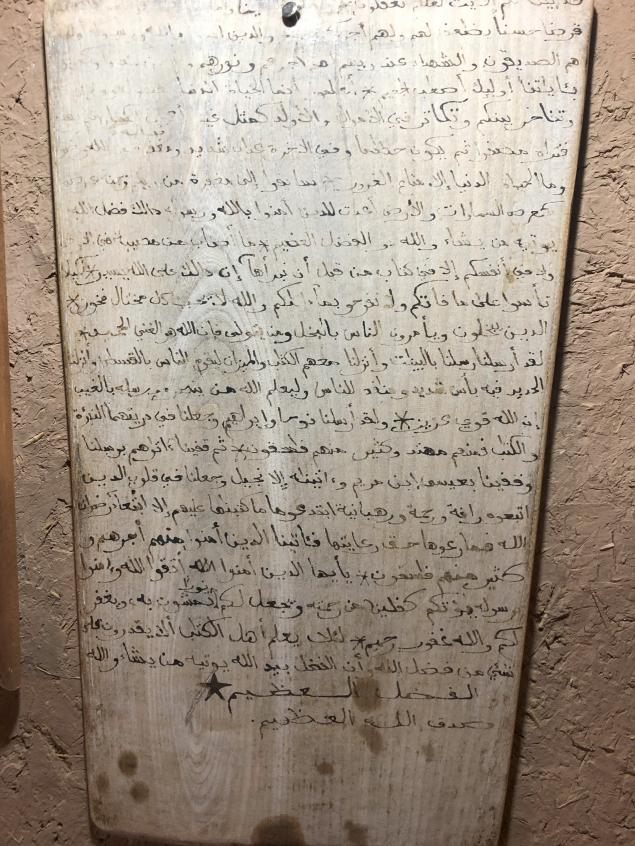 قرضا حسنا يضعف لهم ولهم أجر والذين
هم الصديقون والشهداء عند ربهم أجرهم ونورهم
بئاياتنا أوليك أصحاب أنما الحياة الدنيا
وتفاخر بينكم وتكاثر في الأموال والأولد كمثل غيث
فتراه مصفرا ثم يكون حطما وفي الآخرة عذاب شديد
وما الحياة الدنيا إلا متاع الغرور * سابقوا إلى مغفرة من
كعرض السماوات والأرض أعدت للذين آمنوا بالله ورسله ذالك فضل الله
يوتيه من يشاء والله ذو الفضل العظيم * ما أصاب من مصيبة في
ولا في أنفسكم إلا في كتاب من قبل أن نبرأها إن ذالك على الله يسير *
تأسوا على ما فاتكم ولا تفرحوا بما ءاتكم والله لا يحب كل مختال فخور *
الذين يبخلون ويأمرون الناس بالبخل ومن يتولى فإن الله هو الغني الحميد *
لقد أرسلنا رسلنا بالبينت وأنزلنا معهم الكتب والميزان ليقوم الناس بالقسط وأنزلنا
الحديد فيه بأس شديد ومنافع للناس وليعلم الله من ورسله بالغيب
إن الله قوي عزيز * ولقد أرسلنا نوحا وإبراهيم وجعلنا في ذريتهما النبوءة
والكتب فمنهم مهتد وكثير منهم فاسقون * ثم قفينا ءاثرهم برسلنا
وقفينا بعيسى ابن مريم وءاتينه الإنجيل وجعلنا في قلوب الذين
اتبعوه رأفة ورحمة ورهبانية ابتدعوها ما كتبنها عليهم إلا ابتغاء رضوان
الله فما رعوها حق رعايتها فئاتينا الذين آمنوا منهم أجرهم و
كثير منهم فاسقون * يأيها الذين آمنوا اتقوا الله وءامنوا
برسوله يوتكم كفلين من رحمته ويجعل لكم نورا تمشون به ويغفر
لكم والله غفور رحيم * لئلا يعلم أهل الكتب ألا يقدرون على
شيء من فضل الله وأن الفضل بيد الله يوتيه من يشاء والله
الفضل العظيم ★
صدق الله العظيم.